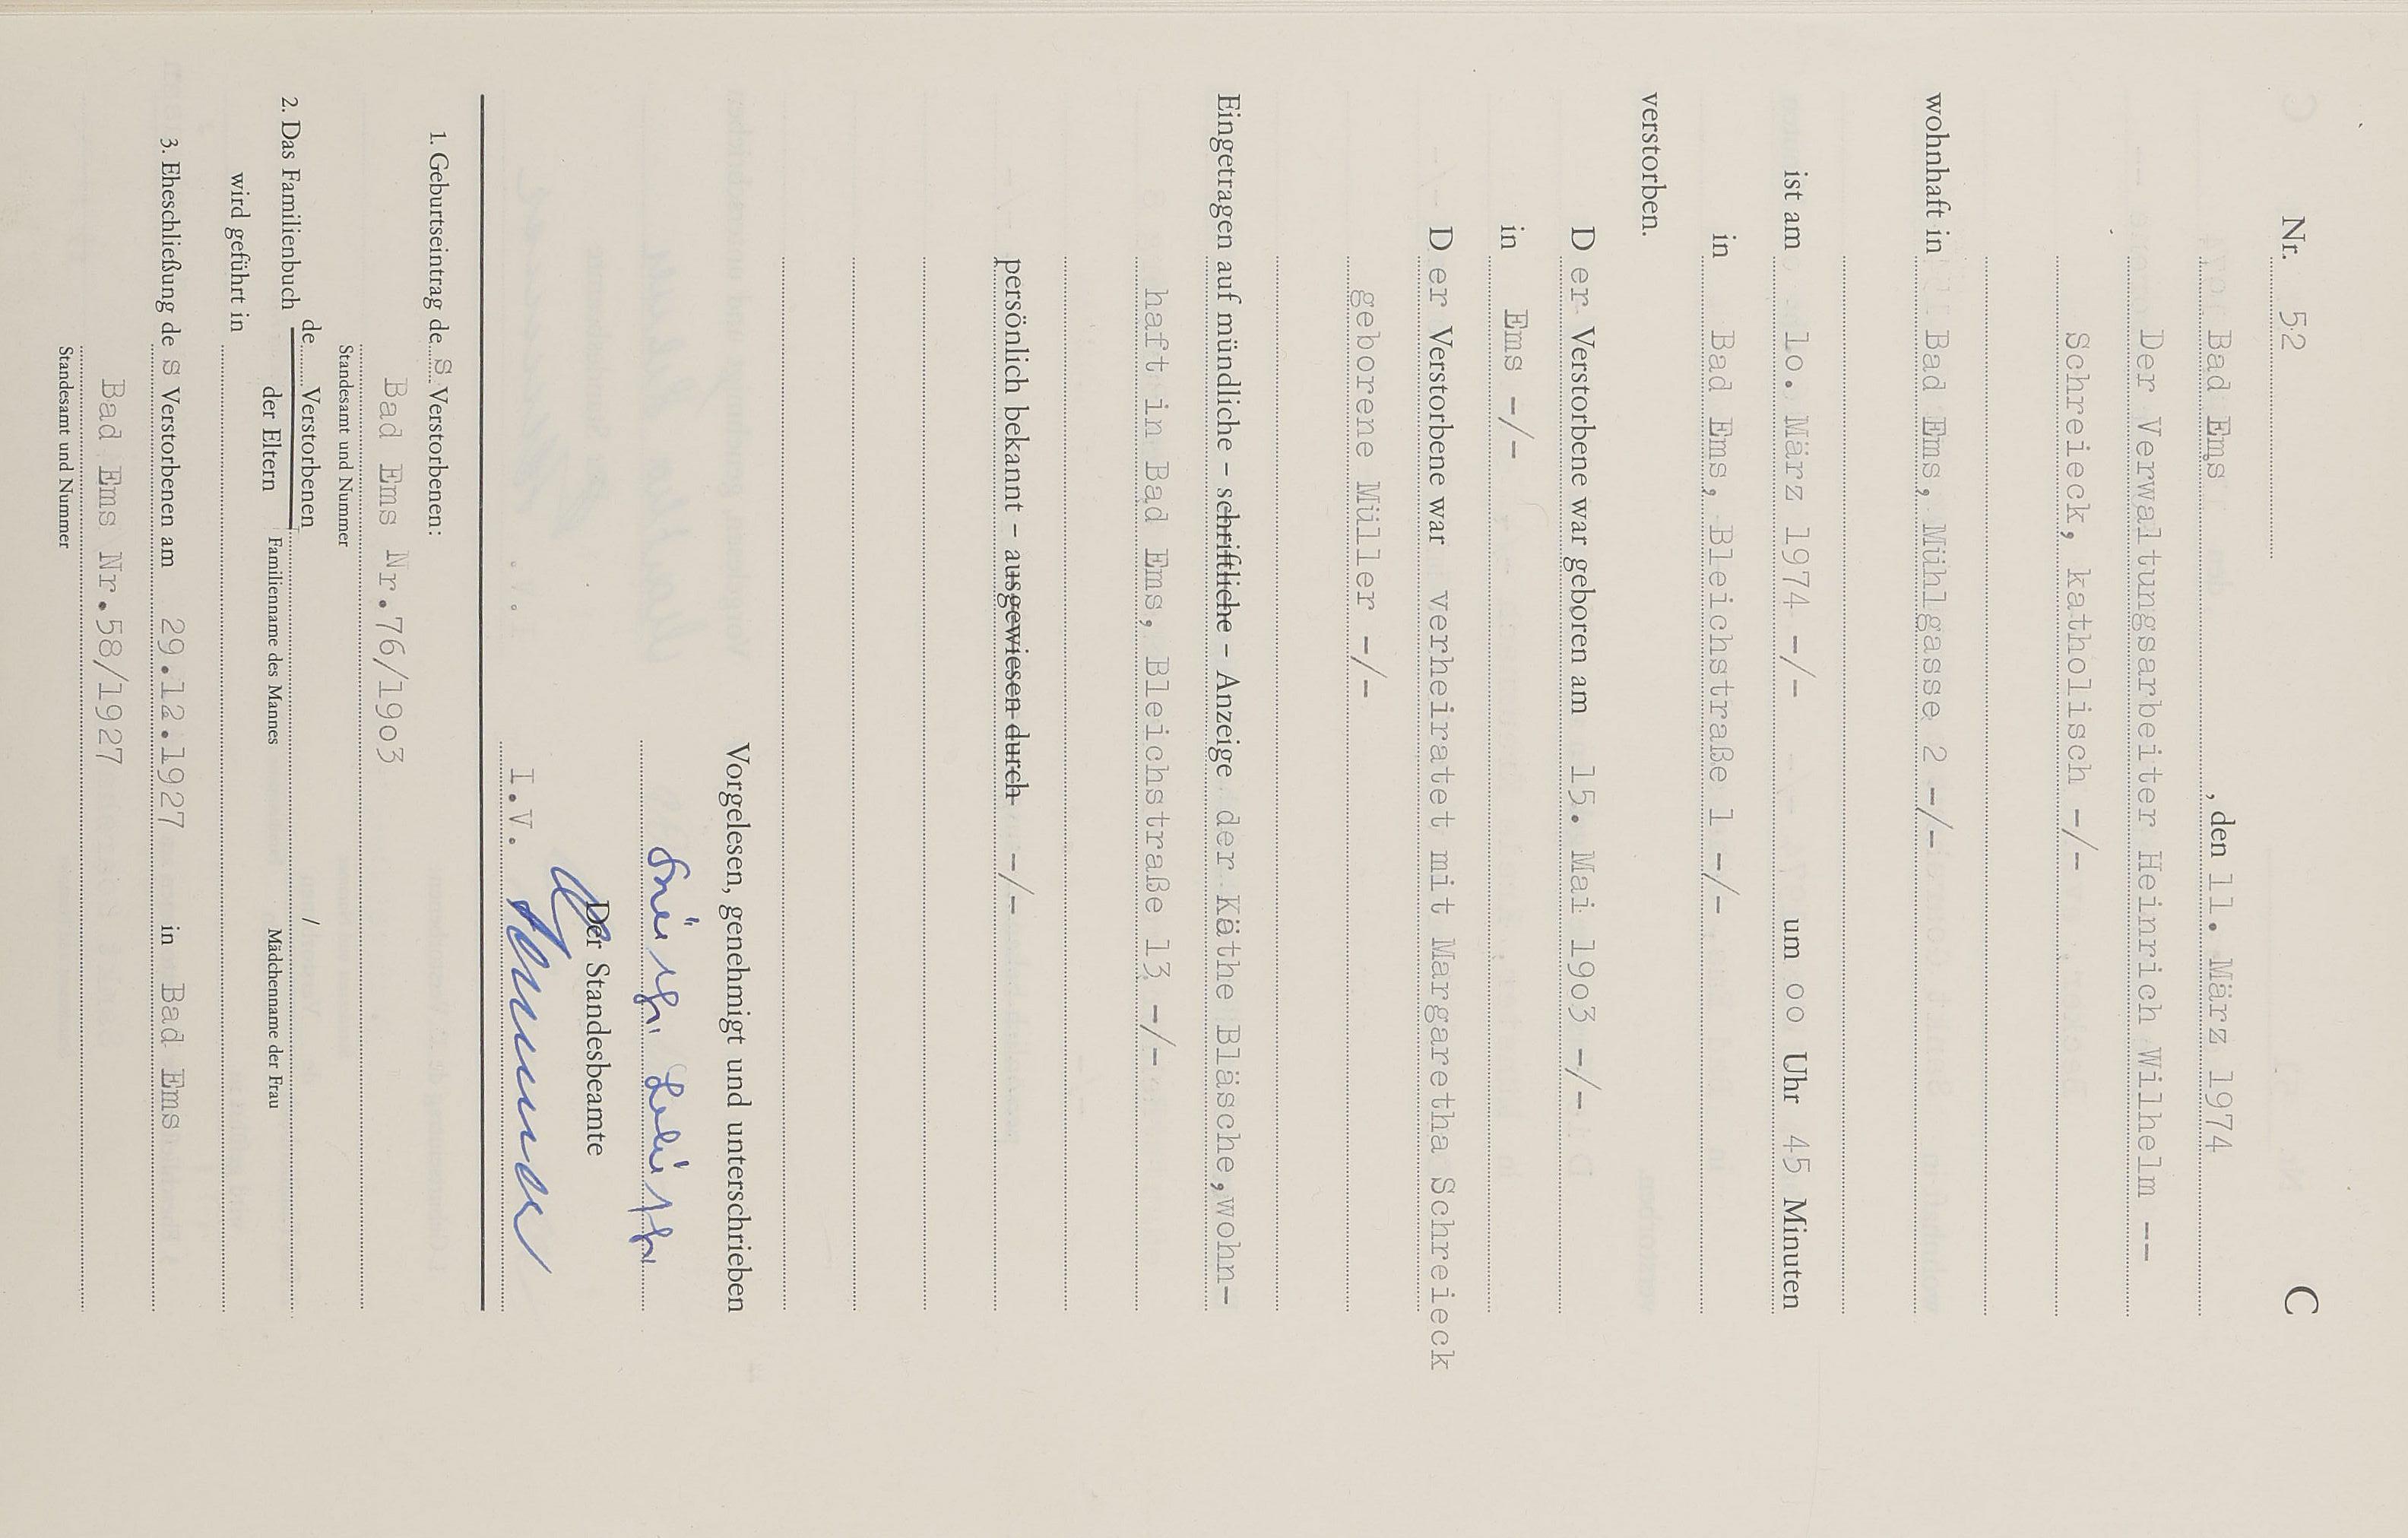 C
Nr. 52
Bad Ems, den 11. März 1974
Der Verwaltungsarbeiter Heinrich Wilhelm --
Schreieck, katholisch -/-
wohnhaft in Bad Ems, Mühlgasse 2 -/-
ist am lo. März 1974 -/- um oo Uhr 45 Minuten
in Bad Ems, Bleichstraße 1 -/-
verstorben.
D er Verstorbene war geboren am 15. Mai 19o3 -/-
in Ems -/-
D er Verstorbene war verheiratet mit Margaretha Schreieck
geborene Müller -/-
Eingetragen auf mündliche - schriftliche - Anzeige der Käthe Bläsche, wohn-
haft in Bad Ems, Bleichstraße 13 -/-
persönlich bekannt - ausgewiesen durch -/-
Vorgelesen, genehmigt und unterschrieben
Der Standesbeamte
I.V.
1. Geburtseintrag de s Verstorbenen:
Bad Ems Nr.76/19o3
Standesamt und Nummer
2. Das Familienbuch de Verstorbenen /
der Eltern Familienname des Mannes Mädchenname der Frau
wird geführt in
3. Eheschließung de s Verstorbenen am 29.12.1927 in Bad Ems
Bad Ems Nr.58/1927
Standesamt und Nummer